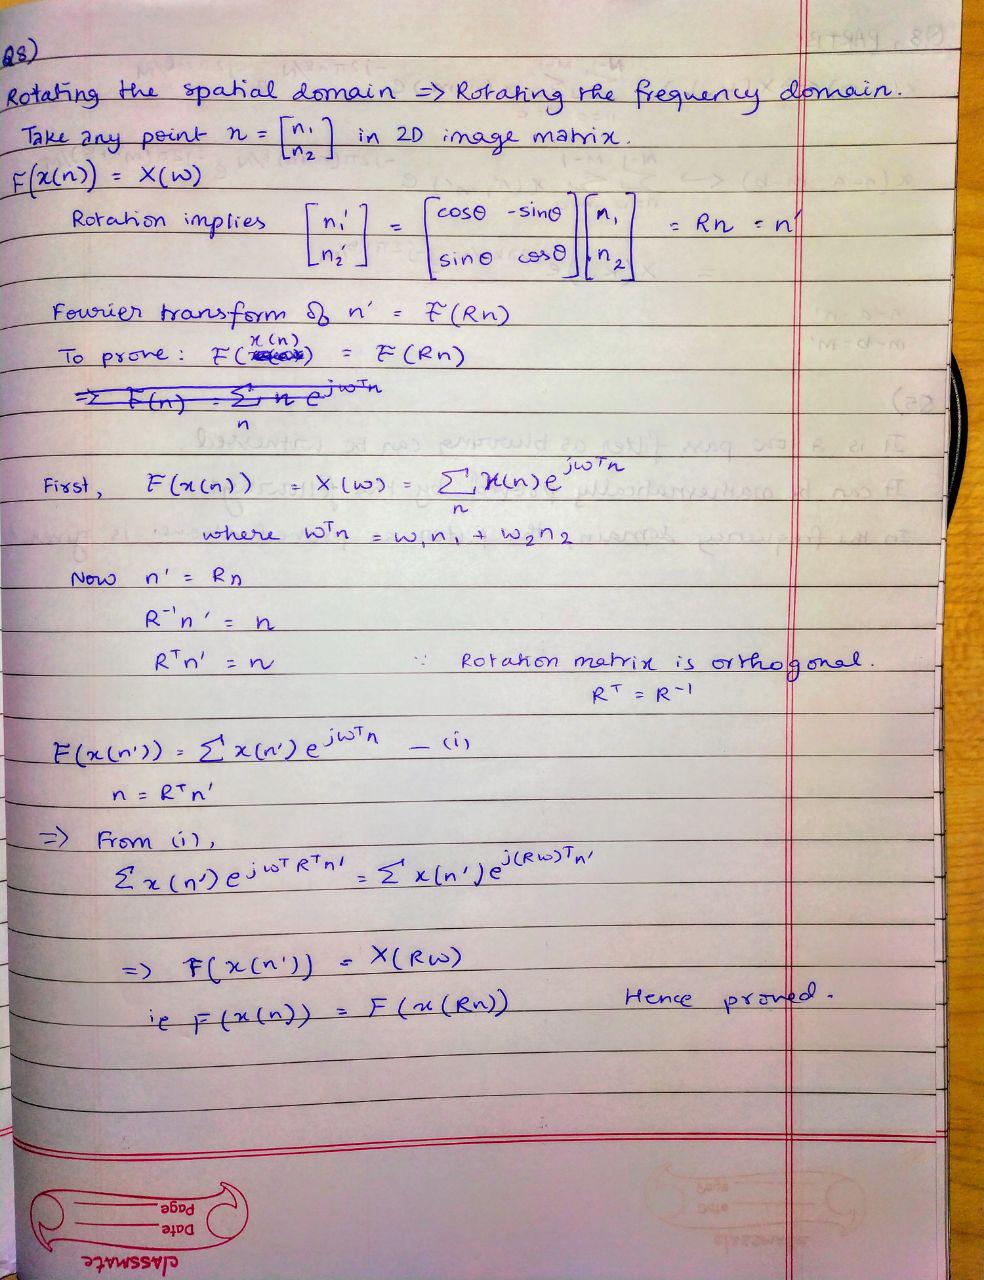 Q8)
Rotating the spatial domain => Rotating the frequency domain.
Take any point n = [n₁ n₂] in 2D image matrix.
F(x(n)) = X(w)
Rotation implies [n₁' n₂'] = [cosθ -sinθ sinθ cosθ] [n₁ n₂] = Rn = n'
Fourier transform of n' = F(Rn)
To prove: F(x(n)) = F(Rn)
=> F(n) = Σ_n n e^{jwᵀn}
First, F(x(n)) = X(w) = Σ_n x(n) e^{jwᵀn}
where wᵀn = w₁n₁ + w₂n₂
Now n' = Rn
R⁻¹n' = n
Rᵀn' = n ∵ Rotation matrix is orthogonal.
Rᵀ = R⁻¹
F(x(n')) = Σ x(n') e^{jwᵀn} — (i)
n = Rᵀn'
=> From (i),
Σ x(n') e^{jwᵀRᵀn'} = Σ x(n') e^{j(Rw)ᵀn'}
=> F(x(n')) = X(Rw)
ie F(x(n)) = F(x(Rn)) Hence proved.
classmate
Date
Page